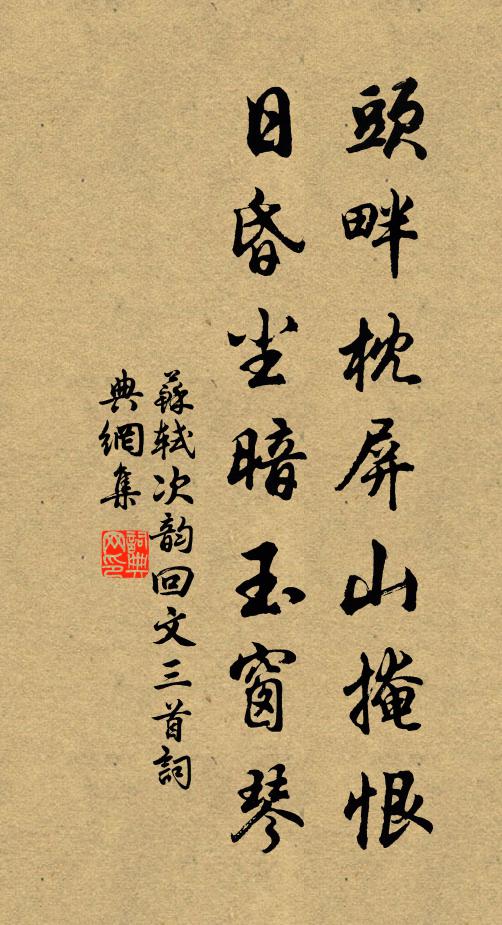 頭畔枕屏山掩恨
日昏尘暗玉窗琴
蘇軾次韵回文三首詞
典網集
詞典
网印